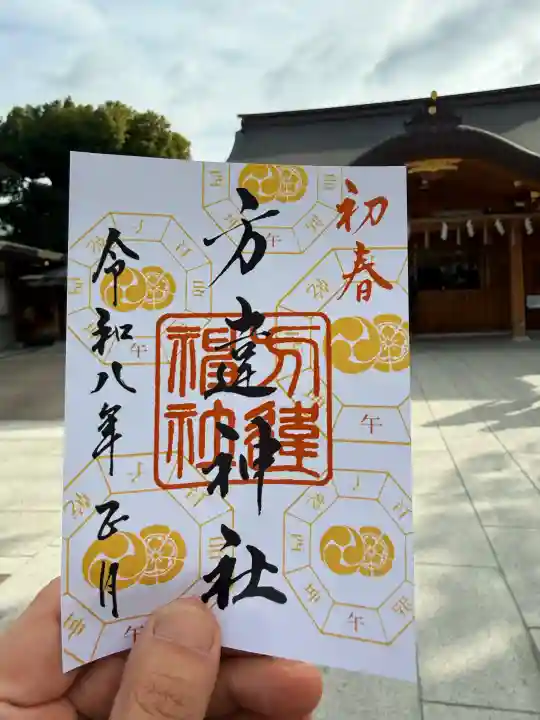 初春
方違神社
令和八年 正月
方違
神社
午
午
午
午
午